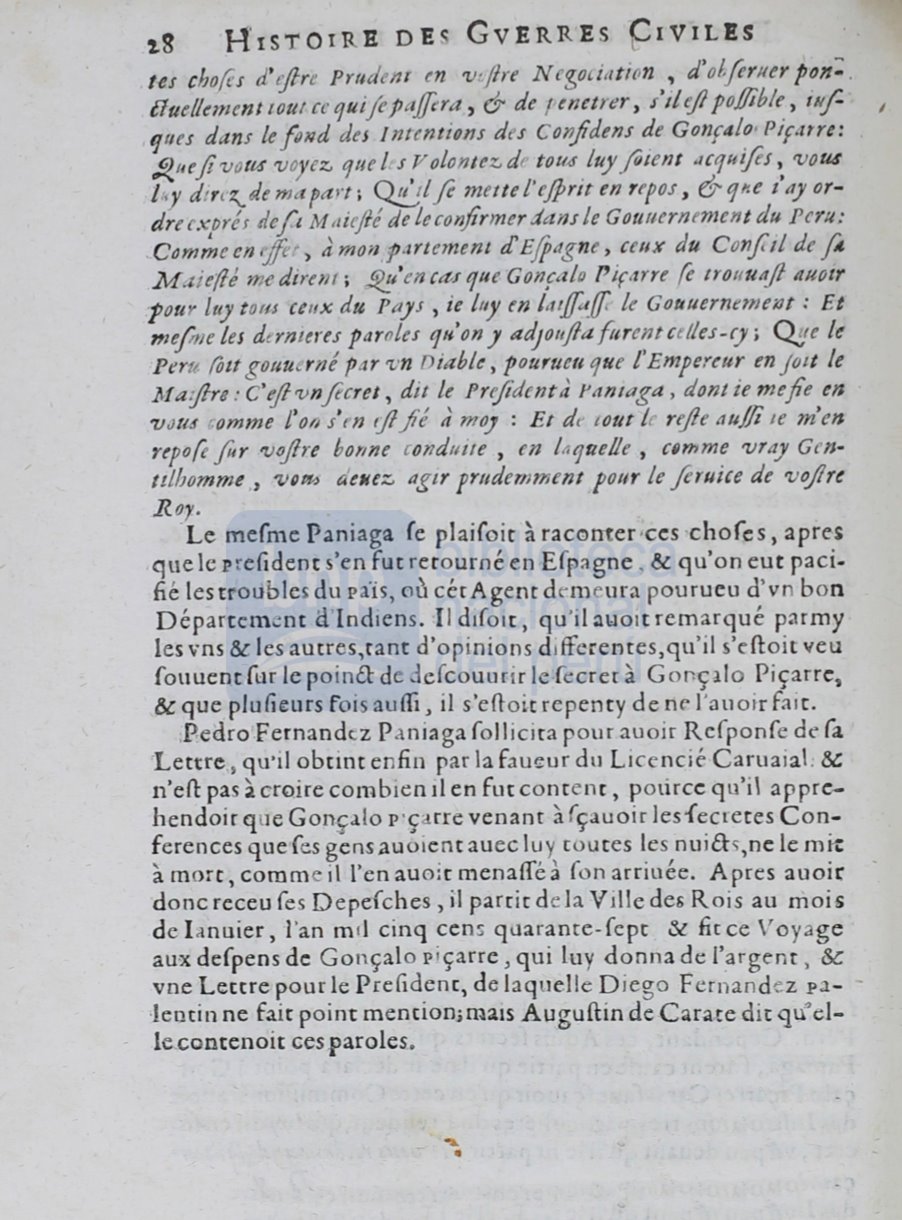 28 HISTOIRE DES GVERRES CIVILES
tes choſes d'eſtre Prudent en voſtre Negociation , d'obſeruer pon-
ctuellement tout ce qui ſe paſſera , & de penetrer , s'il eſt poſſible , iuſ-
ques dans le fond des Intentions des Confidens de Gonçalo Piçarre:
Que ſi vous voyez que les Volontez de tous luy ſoient acquiſes , vous
luy direz de ma part ; Qu'il ſe mette l'eſprit en repos , & que i'ay or-
dre exprés de ſa Maieſté de le confirmer dans le Gouuernement du Peru:
Comme en effet , à mon partement d'Eſpagne , ceux du Conſeil de ſa
Maieſté me dirent ; Qu'en cas que Gonçalo Piçarre ſe trouuaſt auoir
pour luy tous ceux du Pays , ie luy en laiſſaſſe le Gouuernement : Et
meſme les dernieres paroles qu'on y adjouſta furent celles-cy ; Que le
Peru ſoit gouuerné par vn Diable , pourueu que l'Empereur en ſoit le
Maiſtre : C'eſt vn ſecret , dit le Preſident à Paniaga , dont ie me fie en
vous comme l'on s'en eſt fié à moy : Et de tout le reſte auſſi ie m'en
repoſe ſur voſtre bonne conduite , en laquelle , comme vray Gen-
tilhomme , vous deuez agir prudemment pour le ſeruice de voſtre
Roy.
Le meſme Paniaga ſe plaiſoit à raconter ces choſes, apres
que le Preſident s'en fut retourné en Eſpagne, & qu'on eut paci-
fié les troubles du Païs, où cét Agent demeura pourueu d'vn bon
Département d'Indiens. Il diſoit, qu'il auoit remarqué parmy
les vns & les autres, tant d'opinions differentes, qu'il s'eſtoit veu
ſouuent ſur le poinct de deſcouurir le ſecret à Gonçalo Piçarre,
& que pluſieurs fois auſſi, il s'eſtoit repenty de ne l'auoir fait.
Pedro Fernandez Paniaga ſollicita pour auoir Reſponſe de ſa
Lettre, qu'il obtint enfin par la faueur du Licencié Caruaial. &
n'eſt pas à croire combien il en fut content, pource qu'il appre-
hendoit que Gonçalo Piçarre venant à ſçauoir les ſecretes Con-
ferences que ſes gens auoient auec luy toutes les nuicts, ne le mit
à mort, comme il l'en auoit menaſſé à ſon arriuée. Apres auoir
donc receu ſes Depeſches, il partit de la Ville des Rois au mois
de Ianuier, l'an mil cinq cens quarante-ſept & fit ce Voyage
aux deſpens de Gonçalo Piçarre, qui luy donna de l'argent, &
vne Lettre pour le Preſident, de laquelle Diego Fernandez Pa-
lentin ne fait point mention; mais Auguſtin de Carate dit qu'el-
le contenoit ces paroles.
biblioteca
nacional
del perú